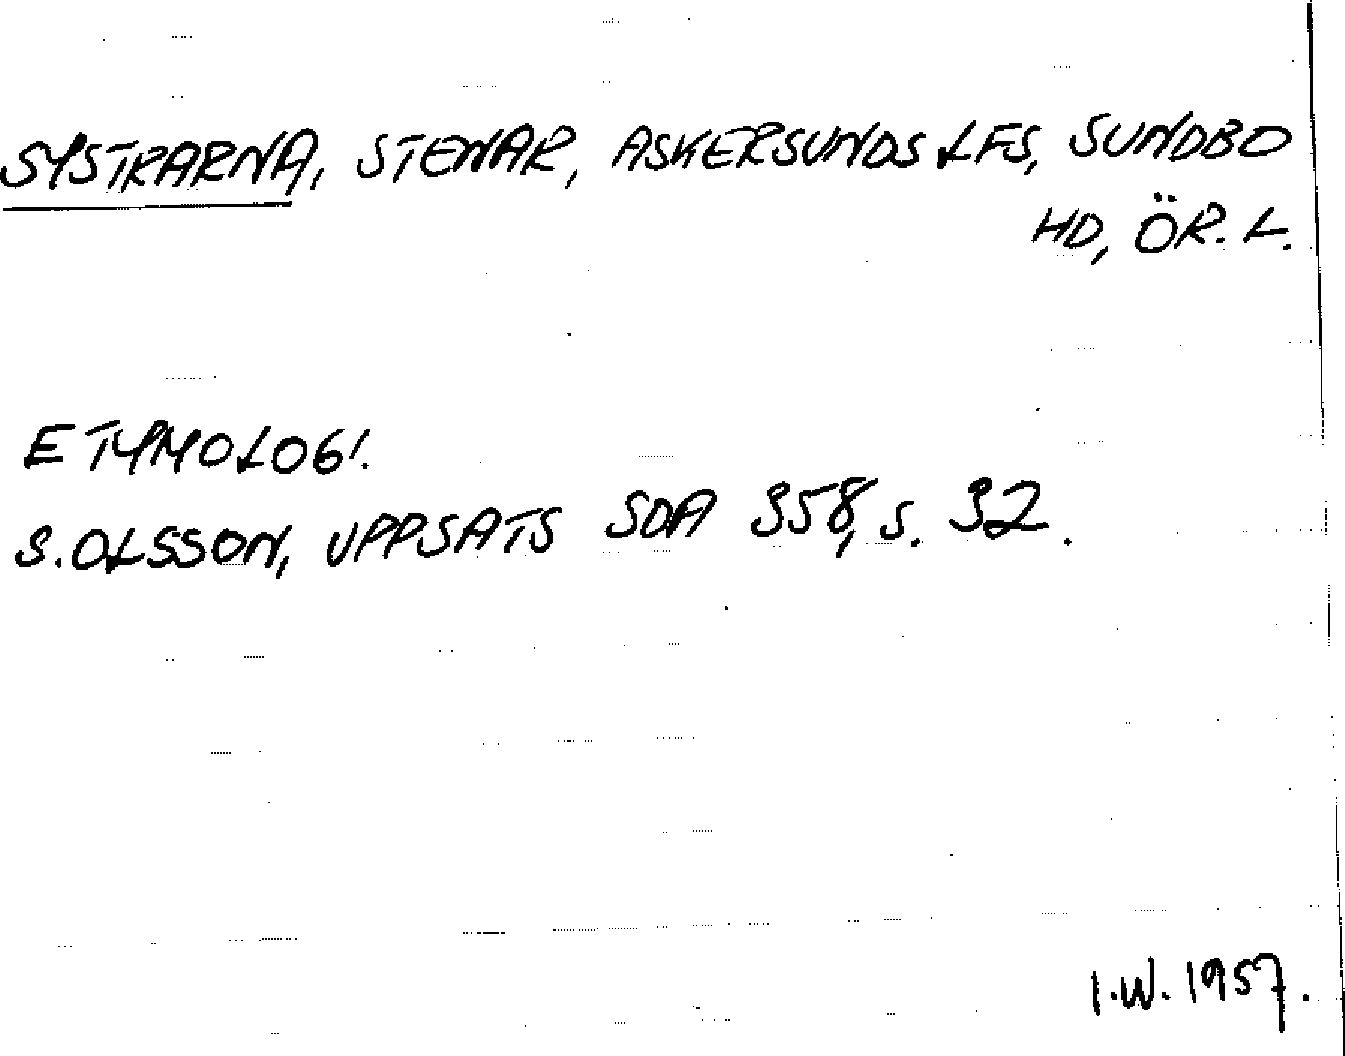 SYSTRARNA, STENAR, ASKERSUNDS LFS, SUNDBO
HD, ÖR. L.
ETYMOLOGI.
S. OLSSON, UPPSATS SOA 358, S. 32.
I.W. 1957.